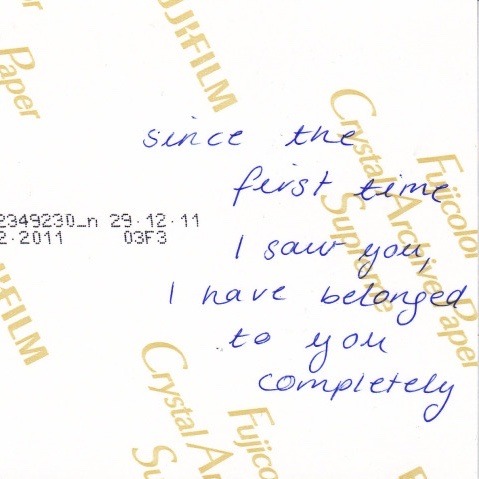 FUJIFILM
Paper
since the
first time
I saw you,
I have belonged
to you
completely
2349230_n 29.12.11
2.2011 03F3
Fujicolor
Crystal Archive Paper
Supreme
FUJIFILM
Fujico
Crystal A
Su